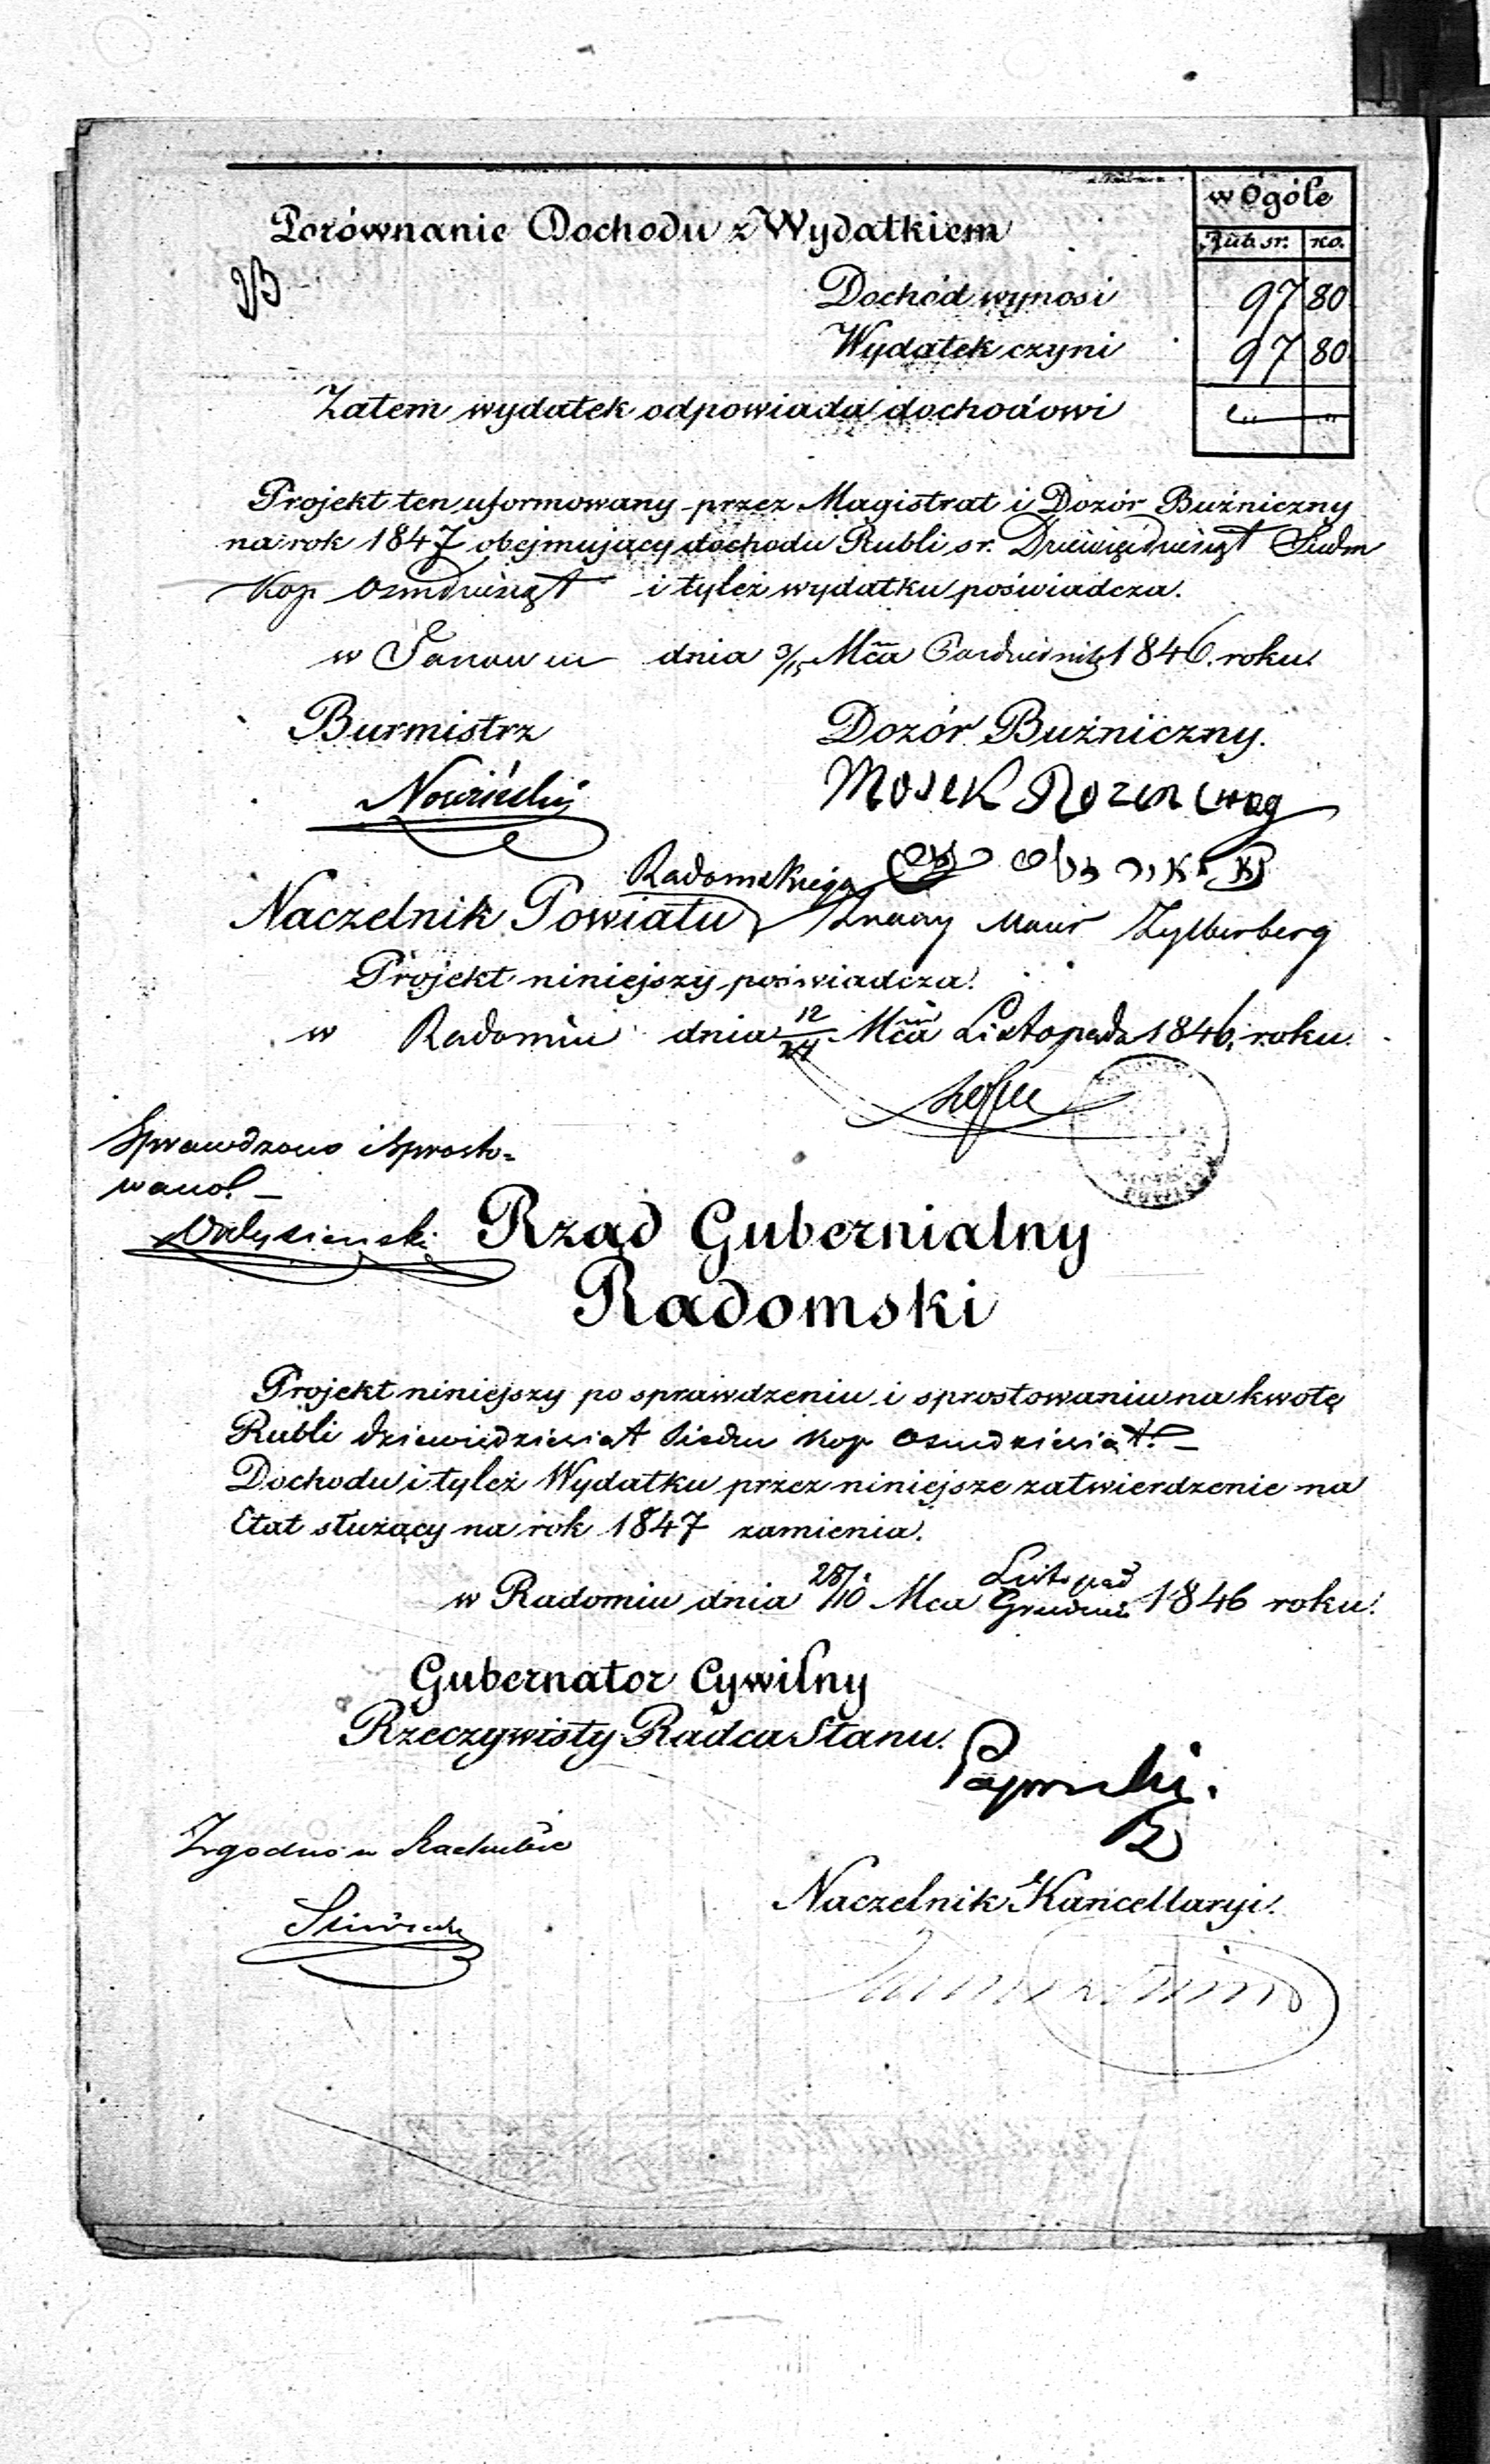 w Ogóle
Porównanie Dochodu z Wydatkiem
Rub. sr. ko.
Dochód wynosi 97 80
Wydatek czyni 97 80
Zatem wydatek odpowiada dochodowi
Projekt ten uformowany przez Magistrat i Dozór Buźniczny
na rok 1847 obejmujący dochodu Rubli sr. Dziewięćdziesiąt Siedm
Kop Osmdziesiąt i tyleż wydatku poświadcza.
w dnia 3/15 Mca Październik 1846. roku.
Burmistrz Dozór Buźniczny.
Mosek Rozencwag
Radomskiego
Naczelnik Powiatu Znaczy Zylberberg
Projekt niniejszy poświadcza.
w Radomiu dnia 12/24 Mca Listopada 1846. roku.
Sprawdzono i Sprosto-
wano. —
Rząd Gubernialny
Radomski
Projekt niniejszy po sprawdzeniu i sprostowaniu na kwotę
Rubli dziewiędziesiąt siedm kop osmdziesiąt. —
Dochodu i tyleż Wydatku przez niniejsze zatwierdzenie na
Etat służący na rok 1847 zamienia.
Listopad
w Radomiu dnia 28/10 Mca Grudnia 1846 roku.
Gubernator Cywilny
Rzeczywisty Radca Stanu.
Zgodno w Rachubie
Naczelnik Kancellaryi.